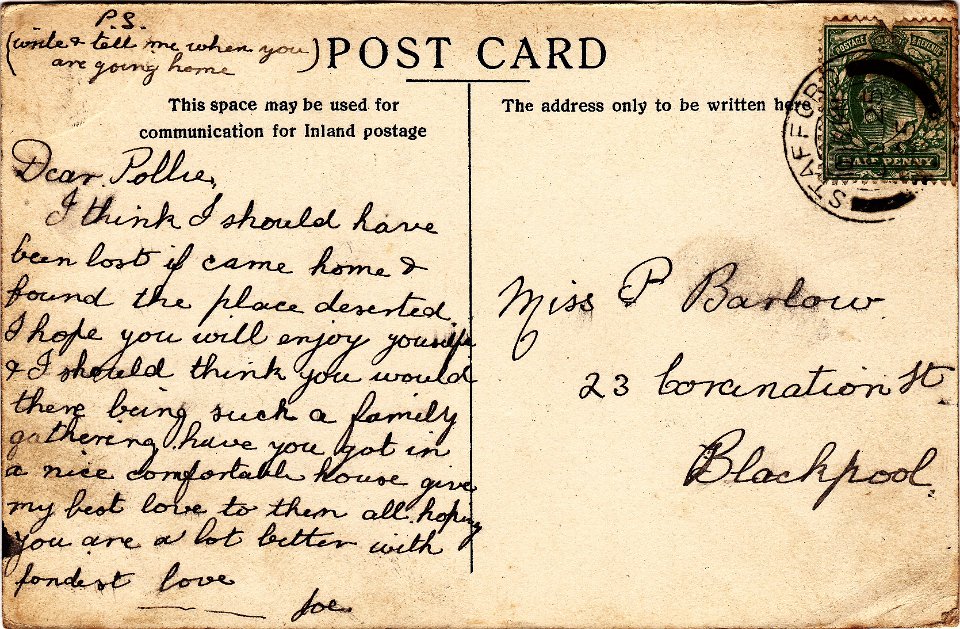 P.S.
(write & tell me when you
are going home)
POST CARD
This space may be used for
communication for Inland postage
The address only to be written here
POSTAGE REVENUE
HALF PENNY
STAFFOR
Dear Pollie,
I think I should have
been lost if came home &
found the place deserted
I hope you will enjoy yourself
& I should think you would
there being such a family
gathering, have you got in
a nice comfortable house give
my best love to them all, hoping
you are a lot better with
fondest love
Joe
Miss P Barlow
23 Coronation St
Blackpool.